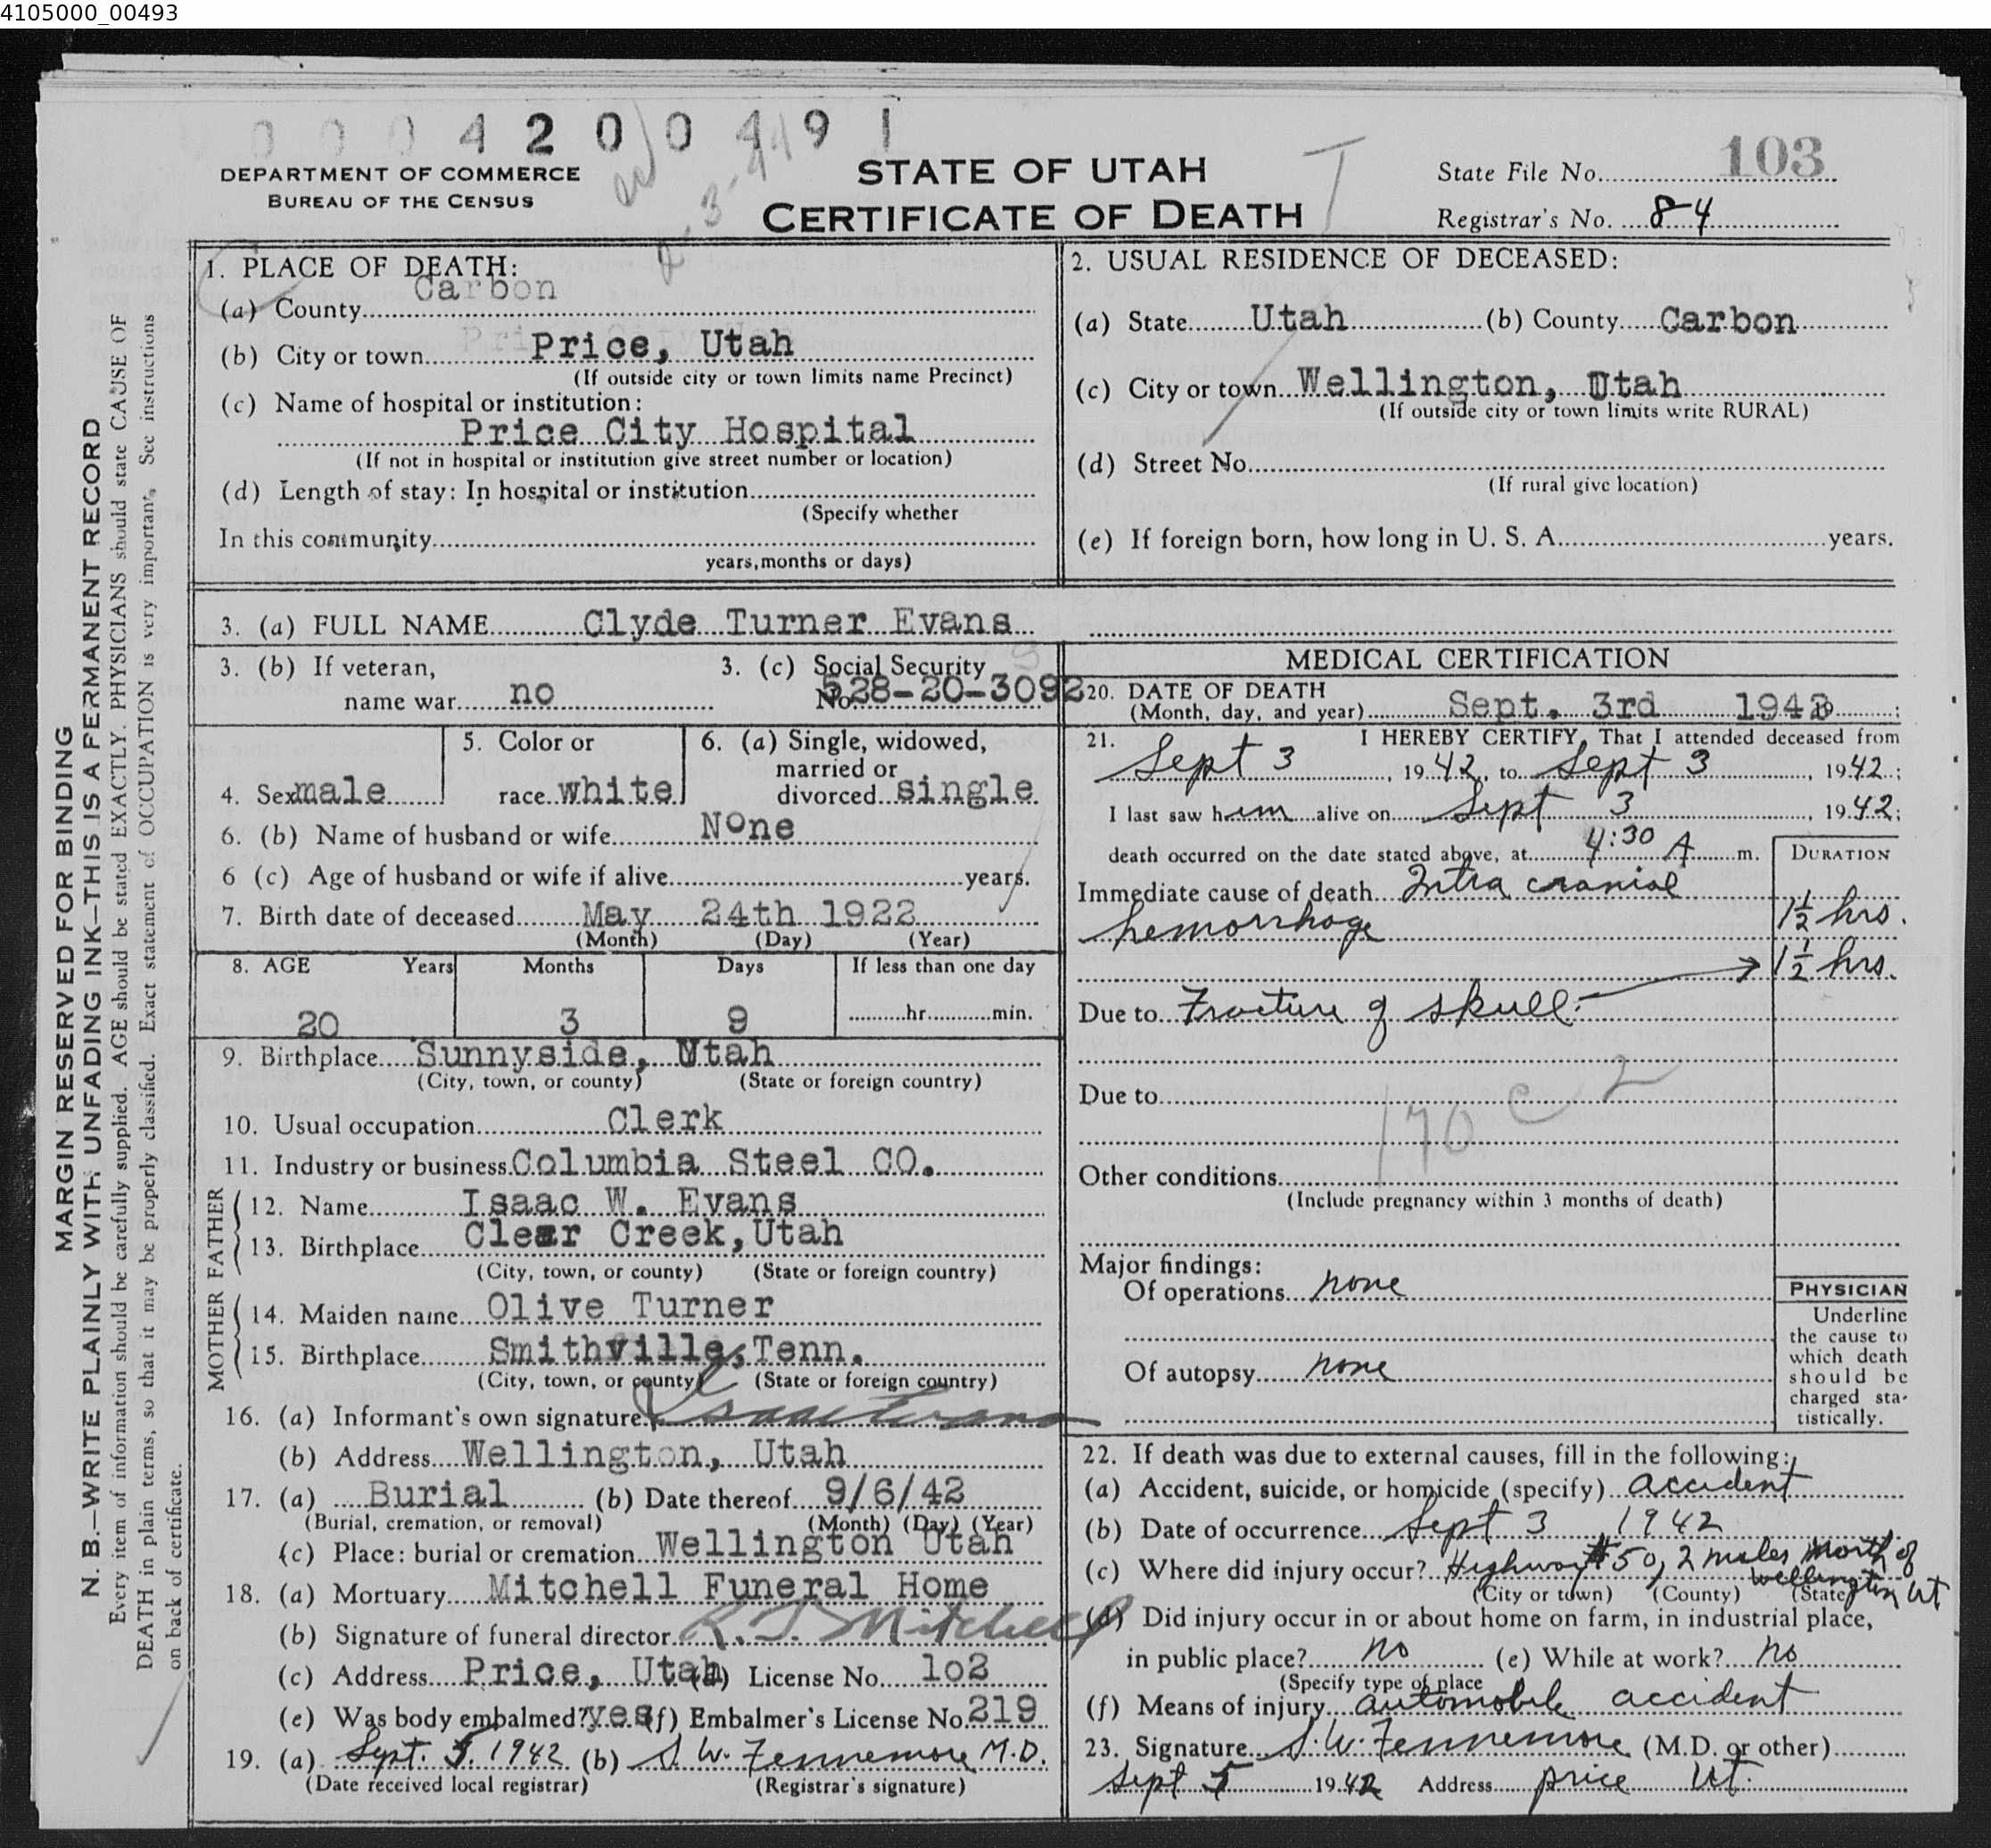 4105000_00493
0 0 0 4 2 0 0 4 9 1
DEPARTMENT OF COMMERCE
BUREAU OF THE CENSUS
STATE OF UTAH
CERTIFICATE OF DEATH
State File No. 103
Registrar's No. 84
1. PLACE OF DEATH:
(a) County Carbon
(b) City or town Price, Utah
(If outside city or town limits name Precinct)
(c) Name of hospital or institution:
Price City Hospital
(If not in hospital or institution give street number or location)
(d) Length of stay: In hospital or institution
(Specify whether
In this community
years, months or days)
2. USUAL RESIDENCE OF DECEASED:
(a) State Utah (b) County Carbon
(c) City or town Wellington, Utah
(If outside city or town limits write RURAL)
(d) Street No.
(If rural give location)
(e) If foreign born, how long in U. S. A. years.
3. (a) FULL NAME Clyde Turner Evans
3. (b) If veteran,
name war no
3. (c) Social Security
No. 528-20-3092
4. Sex male
5. Color or
race white
6. (a) Single, widowed,
married or
divorced single
6. (b) Name of husband or wife None
6 (c) Age of husband or wife if alive years.
7. Birth date of deceased May 24th 1922
(Month) (Day) (Year)
8. AGE Years Months Days If less than one day
20 3 9 hr. min.
9. Birthplace Sunnyside, Utah
(City, town, or county) (State or foreign country)
10. Usual occupation Clerk
11. Industry or business Columbia Steel CO.
FATHER
12. Name Isaac W. Evans
13. Birthplace Clear Creek, Utah
(City, town, or county) (State or foreign country)
MOTHER
14. Maiden name Olive Turner
15. Birthplace Smithville, Tenn.
(City, town, or county) (State or foreign country)
16. (a) Informant's own signature Isaac Evans
(b) Address Wellington, Utah
17. (a) Burial (b) Date thereof 9/6/42
(Burial, cremation, or removal) (Month) (Day) (Year)
(c) Place: burial or cremation Wellington Utah
18. (a) Mortuary Mitchell Funeral Home
(b) Signature of funeral director Mitchell
(c) Address Price, Utah (d) License No. 102
(e) Was body embalmed? yes (f) Embalmer's License No. 219
19. (a) Sept. 5. 1942 (b) S. W. Fennemore M.D.
(Date received local registrar) (Registrar's signature)
MEDICAL CERTIFICATION
20. DATE OF DEATH
(Month, day, and year) Sept. 3rd 1942
21. I HEREBY CERTIFY, That I attended deceased from
Sept 3, 1942, to Sept 3, 1942;
I last saw him alive on Sept 3, 1942;
death occurred on the date stated above, at 4:30 A m.
DURATION
Immediate cause of death Intra cranial
hemorrhage 1½ hrs.
1½ hrs.
Due to Fracture of skull
Due to
170 c 2
Other conditions
(Include pregnancy within 3 months of death)
Major findings:
Of operations none
Of autopsy none
PHYSICIAN
Underline
the cause to
which death
should be
charged sta-
tistically.
22. If death was due to external causes, fill in the following:
(a) Accident, suicide, or homicide (specify) accident
(b) Date of occurrence Sept 3 1942
(c) Where did injury occur? Highway #50, 2 miles North of
Wellington Ut
(City or town) (County) (State)
(d) Did injury occur in or about home on farm, in industrial place,
in public place? no (e) While at work? no
(Specify type of place
(f) Means of injury automobile accident
23. Signature S. W. Fennemore (M.D. or other)
Sept 5 1942 Address Price Ut.
MARGIN RESERVED FOR BINDING
N. B.—WRITE PLAINLY WITH UNFADING INK—THIS IS A PERMANENT RECORD
Every item of information should be carefully supplied. AGE should be stated EXACTLY. PHYSICIANS should state CAUSE OF
DEATH in plain terms, so that it may be properly classified. Exact statement of OCCUPATION is very important. See instructions
on back of certificate.